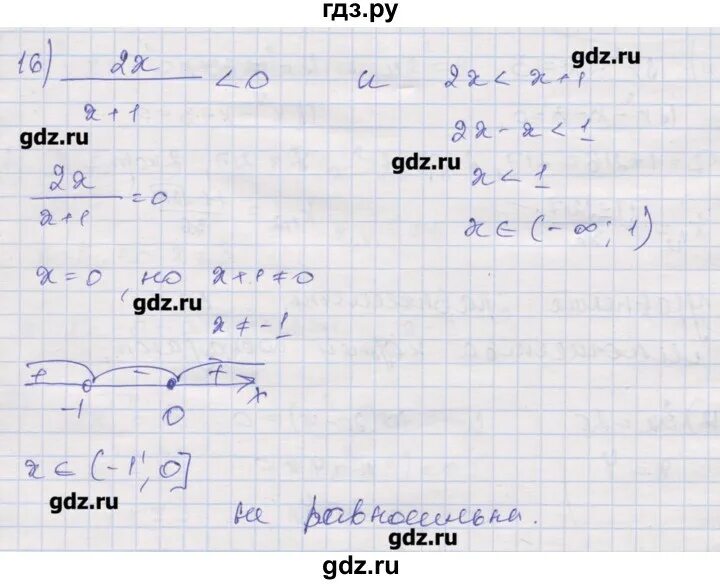 гдз.ру
gdz.ru
16) 2x/x+1 < 0 и 2x < x+1
gdz.ru
2x - x < 1
gdz.ru
x < 1
2x/x+1 = 0
x ∈ (-∞; 1)
x = 0, но x+1 ≠ 0
gdz.ru
x ≠ -1
+ - + x
-1 0
x ∈ (-1; 0]
gdz.ru
не равносильна.
gdz.ru
gdz.ru